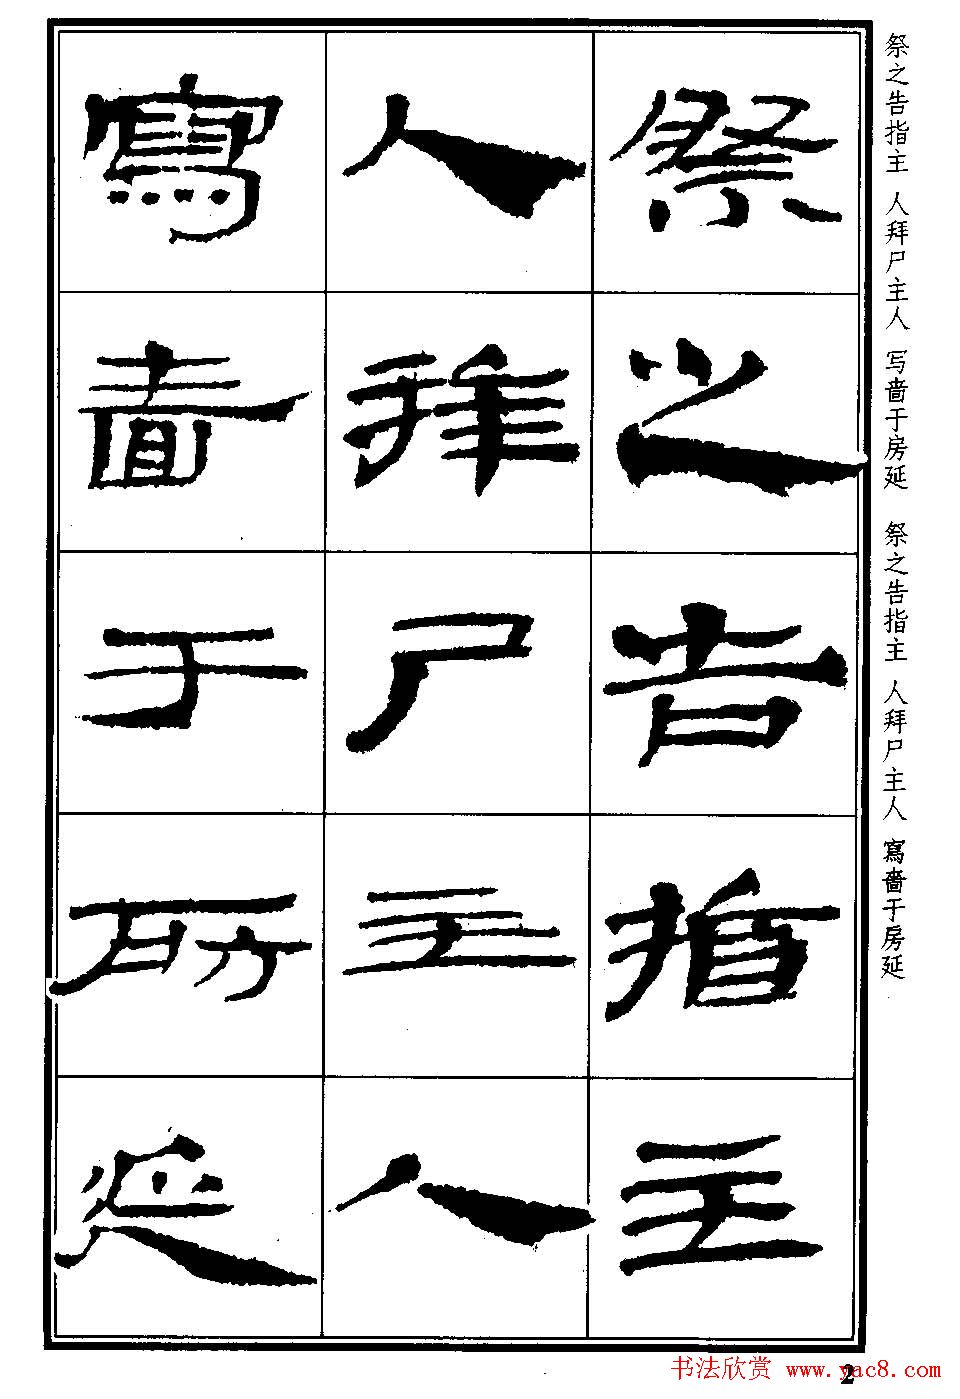 祭之告指主 人拜尸主人 写啬于房延 祭之告指主 人拜尸主人 寫嗇于房延
祭之告指主
人拜尸主人
寫嗇于房延
2
书法欣赏 www.yac8.com